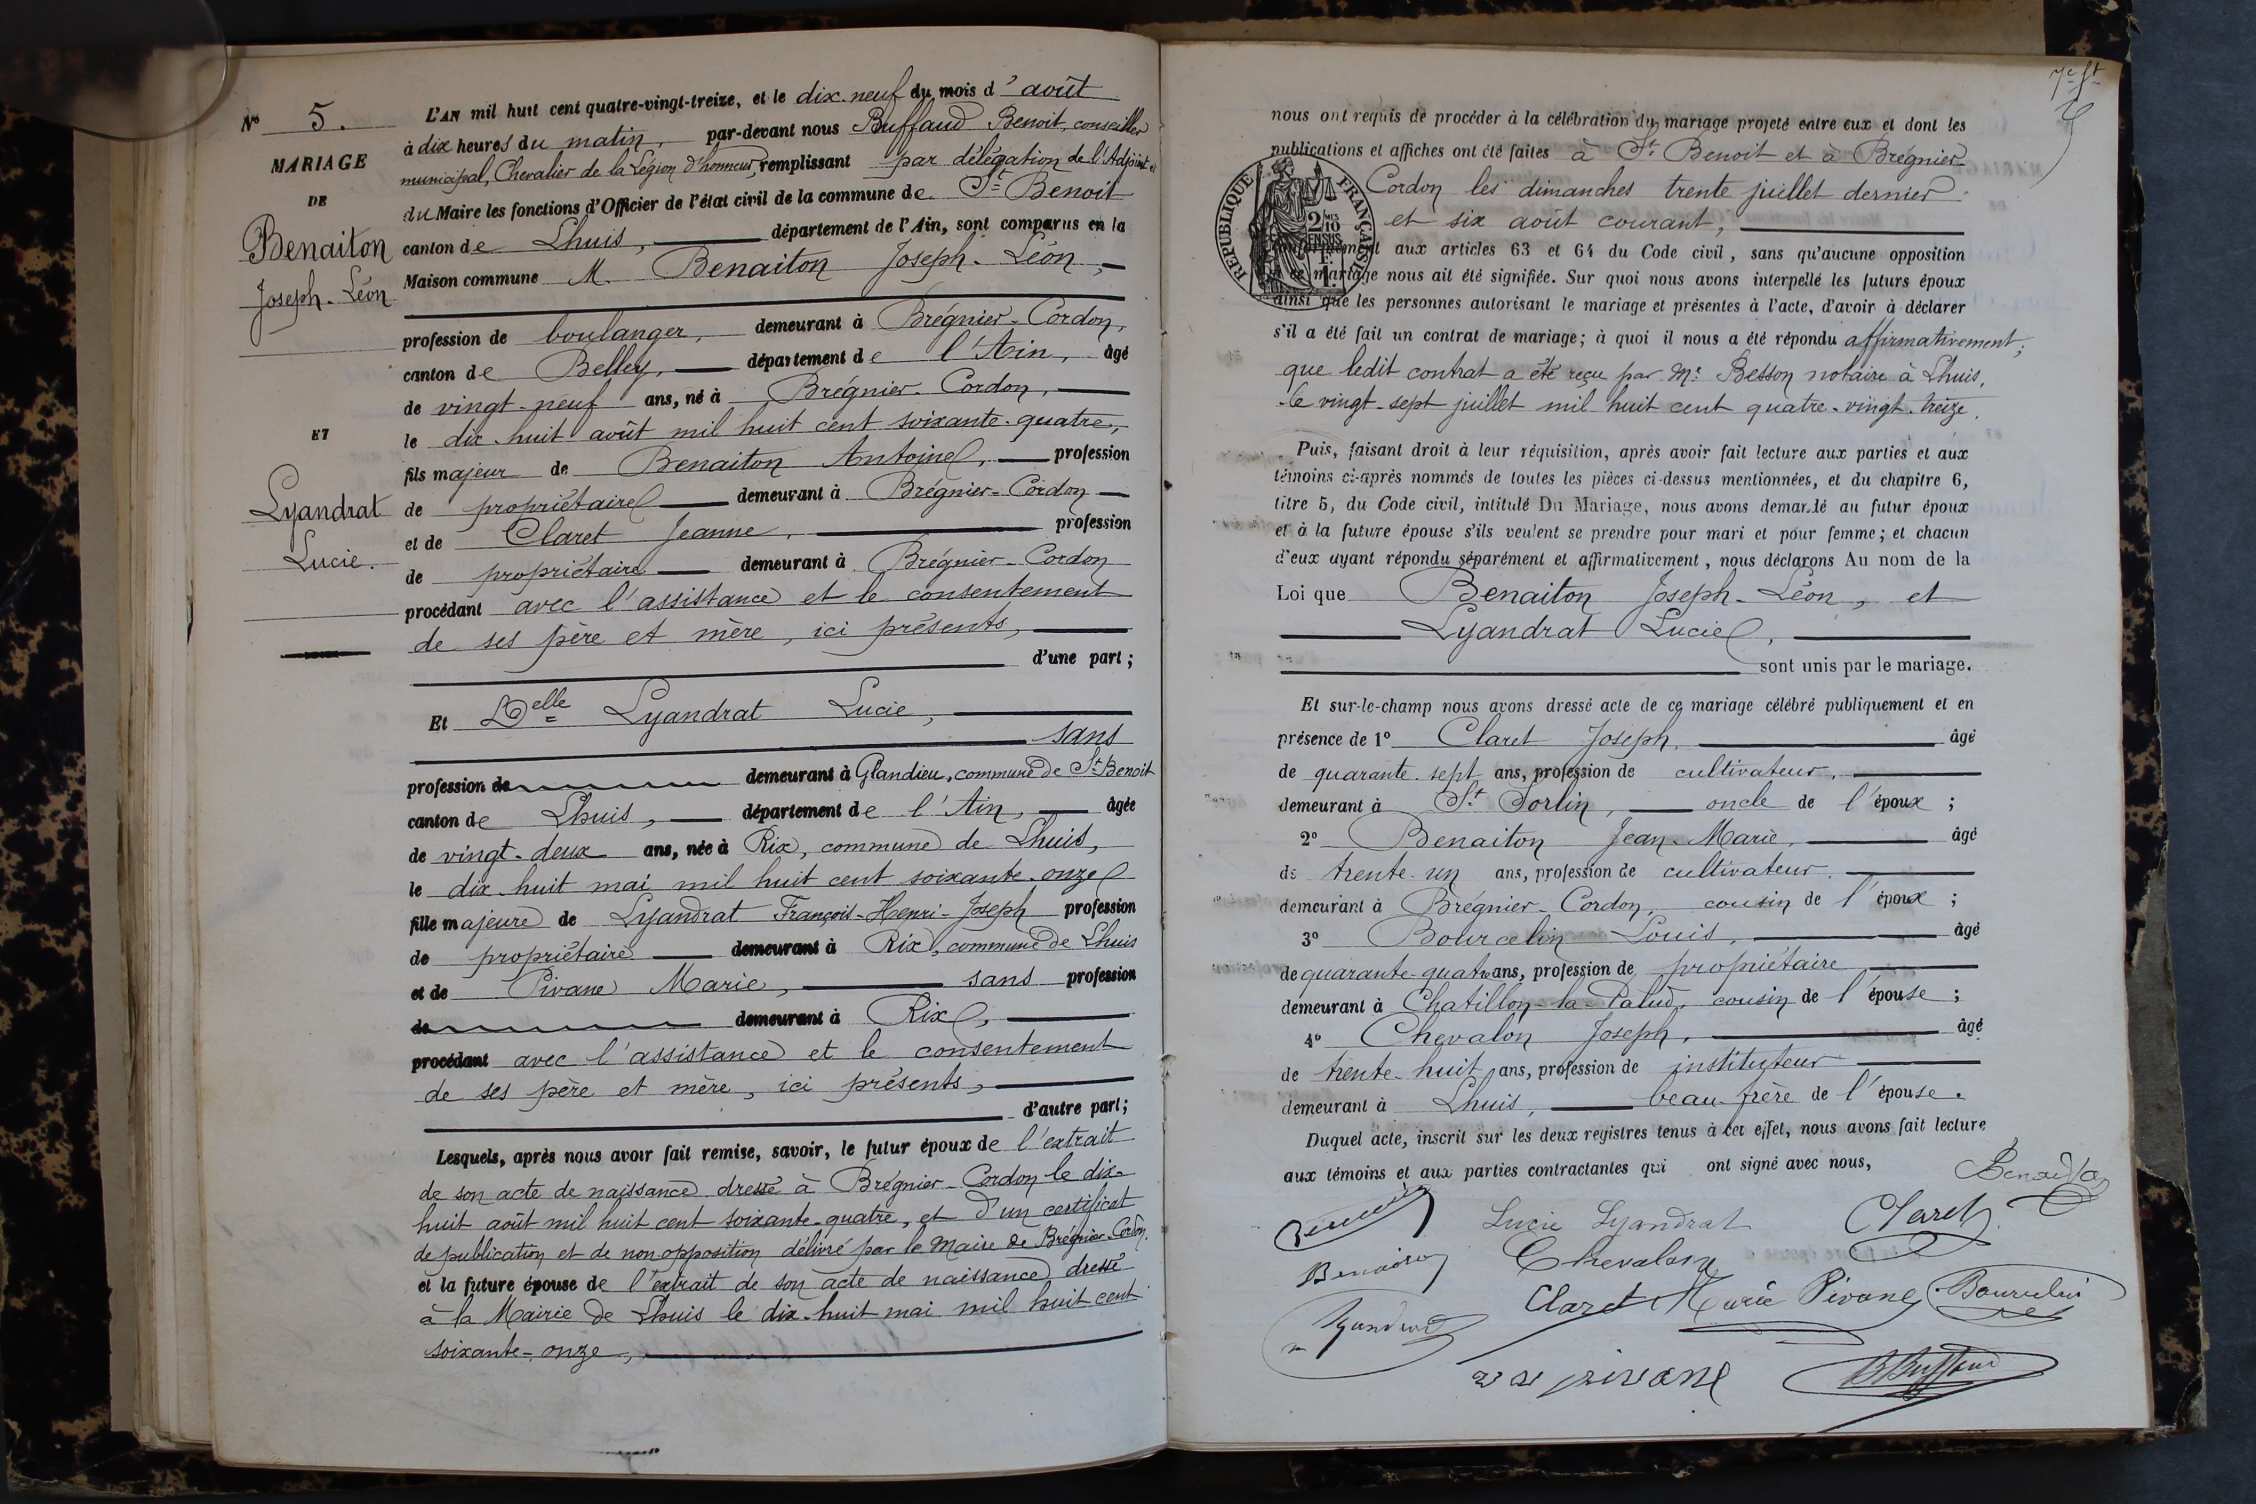 N° 5.
MARIAGE
DE
Benaiton
Joseph-Léon
ET
Lyandrat
Lucie.
L'AN mil huit cent quatre-vingt-treize, et le dix-neuf du mois d'août
à dix heures du matin, par-devant nous Buffaud Benoit, conseiller
municipal, Chevalier de la Légion d'honneur, remplissant par délégation de l'Adjoint et
du Maire les fonctions d'Officier de l'état civil de la commune de St Benoit
canton de Lhuis, département de l'Ain, sont comparus en la
Maison commune M. Benaiton Joseph-Léon,
profession de boulanger, demeurant à Brégnier-Cordon,
canton de Belley, département de l'Ain, âgé
de vingt-neuf ans, né à Brégnier-Cordon,
le dix-huit août mil huit cent soixante-quatre,
fils majeur de Benaiton Antoine, profession
de propriétaire demeurant à Brégnier-Cordon
et de Claret Jeanne, profession
de propriétaire demeurant à Brégnier-Cordon
procédant avec l'assistance et le consentement
de ses père et mère, ici présents,
d'une part;
Et Delle Lyandrat Lucie,
sans
profession de demeurant à Glandieu, commune de St Benoit
canton de Lhuis, département de l'Ain, âgée
de vingt-deux ans, née à Rix, commune de Lhuis,
le dix-huit mai mil huit cent soixante-onze
fille majeure de Lyandrat François-Henri-Joseph profession
de propriétaire demeurant à Rix, commune de Lhuis
et de Pivane Marie, sans profession
de demeurant à Rix,
procédant avec l'assistance et le consentement
de ses père et mère, ici présents,
d'autre part;
Lesquels, après nous avoir fait remise, savoir, le futur époux de l'extrait
de son acte de naissance dressé à Brégnier-Cordon le dix-
huit août mil huit cent soixante-quatre, et d'un certificat
de publication et de non-opposition délivré par le Maire de Brégnier-Cordon.
et la future épouse de l'extrait de son acte de naissance dressé
à la Mairie de Lhuis le dix-huit mai mil huit cent
soixante-onze,
7e ft
nous ont requis de procéder à la célébration du mariage projeté entre eux et dont les
publications et affiches ont été faites à St Benoit et à Brégnier-
Cordon les dimanches trente juillet dernier
et six août courant,
RÉPUBLIQUE FRANÇAISE
2/10 EN SUS
conformément aux articles 63 et 64 du Code civil, sans qu'aucune opposition
à ce mariage nous ait été signifiée. Sur quoi nous avons interpellé les futurs époux
ainsi que les personnes autorisant le mariage et présentes à l'acte, d'avoir à déclarer
s'il a été fait un contrat de mariage; à quoi il nous a été répondu affirmativement;
que ledit contrat a été reçu par Me Besson notaire à Lhuis,
le vingt-sept juillet mil huit cent quatre-vingt-treize.
Puis, faisant droit à leur réquisition, après avoir fait lecture aux parties et aux
témoins ci-après nommés de toutes les pièces ci-dessus mentionnées, et du chapitre 6,
titre 5, du Code civil, intitulé Du Mariage, nous avons demandé au futur époux
et à la future épouse s'ils veulent se prendre pour mari et pour femme; et chacun
d'eux ayant répondu séparément et affirmativement, nous déclarons Au nom de la
Loi que Benaiton Joseph-Léon, et
Lyandrat Lucie,
sont unis par le mariage.
Et sur-le-champ nous avons dressé acte de ce mariage célébré publiquement et en
présence de 1° Claret Joseph, âgé
de quarante-sept ans, profession de cultivateur,
demeurant à St Sorlin, oncle de l'époux;
2° Benaiton Jean-Marie, âgé
de trente-un ans, profession de cultivateur.
demeurant à Brégnier-Cordon, cousin de l'époux;
3° Bourcelin Louis, âgé
de quarante-quatre ans, profession de propriétaire
demeurant à Chatillon-la-Palud, cousin de l'épouse;
4° Chevalon Joseph, âgé
de trente-huit ans, profession de instituteur
demeurant à Lhuis, beau-frère de l'épouse.
Duquel acte, inscrit sur les deux registres tenus à cet effet, nous avons fait lecture
aux témoins et aux parties contractantes qui ont signé avec nous,
Benaiton
Lucie Lyandrat Claret
Benaiton Chevalon
Claret Marie Pivane Bourcelin
Lyandrat
pivane BBuffaud